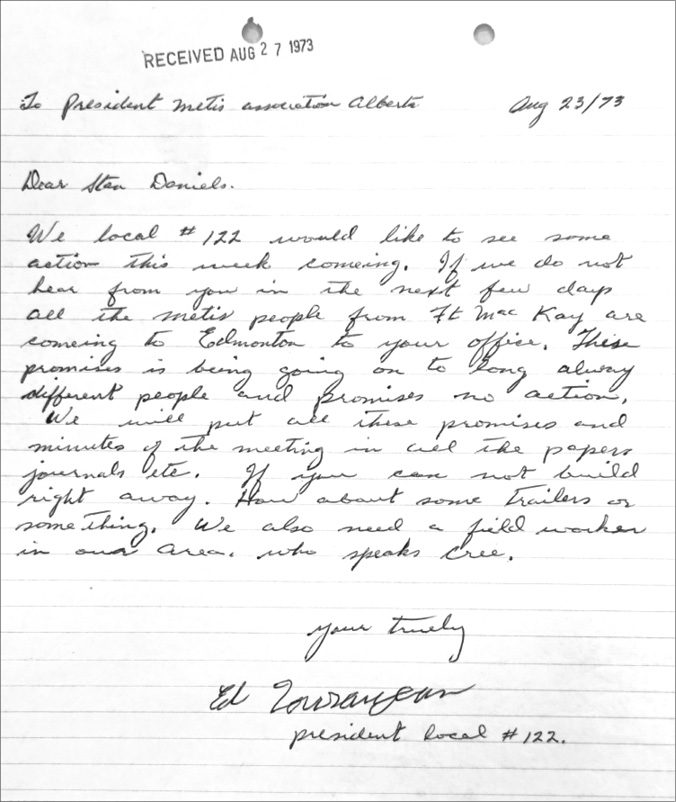 RECEIVED AUG 27 1973
To President metis association Alberta Aug 23/73
Dear Stan Daniels.
We local #122 would like to see some
action this week comeing. If we do not
hear from you in the next few days
all the metis people from Ft Mac Kay are
comeing to Edmonton to your office. These
promises is being going on to long alway
different people and promises no action.
We will put all these promises and
minutes of the meeting in all the papers
journals etc. If you can not build
right away. How about some trailers or
something. We also need a field worker
in our area. who speaks cree.
your truely
Ed
president local #122.